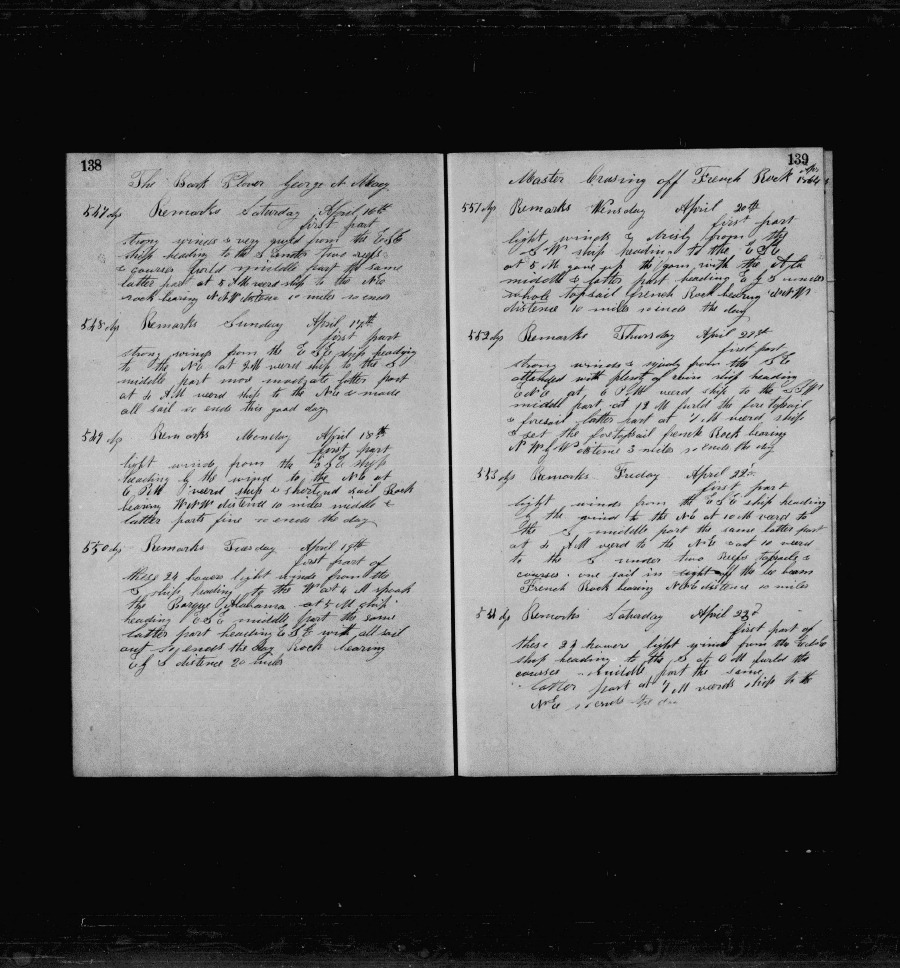 138
The Bark Plover George N Macy
547 dys Remarks Saturday April 16th
first part
strong winds & very rugid from the ESE
ship heading to the S under two reefs
& courses furld middle part the same
latter part at 5 AM weerd ship to the NE
rock bearing NNW distence 10 miles so ends
548 dys Remarks Sunday April 17th
first part
strong winds from the ESE ship heading
to the NE at 2 M weerd ship to the S
middle part mor modrate latter part
at 4 AM weerd ship to the NE & made
all sail so ends this good day
549 dy Remarks Monday April 18th
first part
light winds from the ESE ship
heading by the wind to the NE at
6 PM weerd ship & shortend sail Rock
bearing WNW distence 10 miles middle &
latter parts fine so ends the day
550 dys Remarks Tuesday April 19th
first part of
these 24 howers light winds from the
S ship heading to the W at 4 M spook
the Barque Alabama at 5 M ship
heading ESE middle part the same
latter part heading ESE with all sail
out so ends the day Rock bearing
E by S distence 20 miles
139
Master Crusing off French Rock Apr 1864
551 dys Remarks Wensday April 20th
first part
light winds & from the
SW ship heading to the ESE
at 5 M gave up the gam with the Ala
middle & latter part heading E by S under
whole topsail french Rock bearing WNW
distence 10 miles so ends the day
552 dys Remarks Thursday April 21st
first part
strong winds & from the SE
attended with plenty of rain ship heading
ENE at 6 PM weerd ship to the SSW
middle part at 12 M furld the foretopsail
& foresail latter part at 7 M weerd ship
& set the foretopsail french Rock bearing
NW by W distence 3 miles so ends the day
553 dys Remarks Friday April 22d
first part
light winds from the ESE ship heading
by the wind to the NE at 10 M weerd to
the S middle part the same latter part
at 4 AM weerd to the NE & at 10 weerd
to the S under two Reefs Topsails &
courses one sail in sight off the lee beam
French Rock bearing NNE distence 10 miles
554 dy Remarks Saturday April 23d
first part of
these 24 howers light wind from the
ship heading to the S at 6 M furld the
courses middle part the same
latter part at 7 M weerds ship to the
NE so ends the day